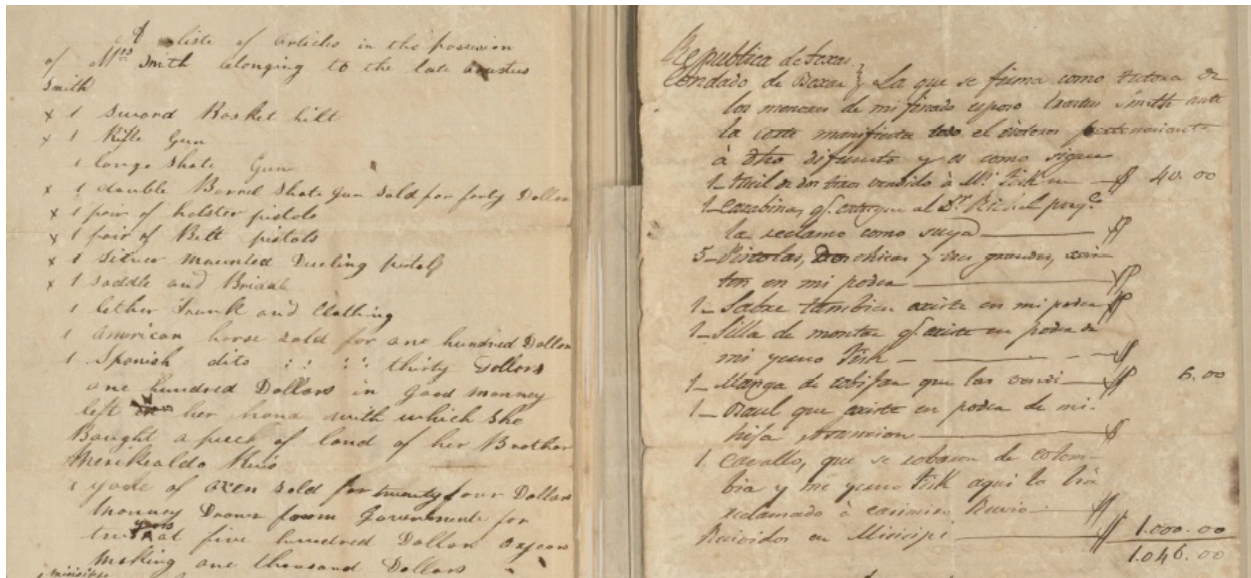 A liste of articles in the possesion
of Mrs Smith belonging to the late erastus
Smith
x 1 sword Basket hilt
x 1 Rifle Gun
1 longe Shate Gun
x 1 double Barrel Shate Gun sold for forty Dollars
x 1 pair of holster pistols
x 1 pair of Belt pistols
x 1 silver mounted Dueling pistol
x 1 saddle and Bridle
1 lether Trunk and Clathing
1 american horse sold for one hundred Dollars
1 Spanish dito : : : : thirty Dollars
one hundred Dollars in Good monney
left her hand with which she
Bought a peece of land of her Brother
1 yoke of oxen sold for twenty four Dollars
Monney Drawn from Government for
two years at five hundred Dollars
Making one thousand Dollars
Republica de Texas
Condado de Bexar } La que se firma como tutora de
los menores de mi finado esposo Erastus Smith ante
la corte manifiesta todo el perteneciente
á dho difunto y es como sigue
1– fucil de dos tiros vendido à Mr. Fisk $ 40.00
1– carabina, qe. entregue al Sr. porqe.
la reclamo como suya $
5– Pistolas, dos chicas y tres grandes, exis-
ten en mi poder $
1– Sable tambien existe en mi poder $
1– Silla de montar qe. existe en poder de
mi yerno Fisk $
1– Manga de que las vendi $ 6.00
1– Baul que existe en poder de mi
hija $
1. Cavallo, que se de colom-
bia y mi yerno Fisk aqui la há
reclamado à casimiro $
Recividos en $ 1.000.00
1.046.00